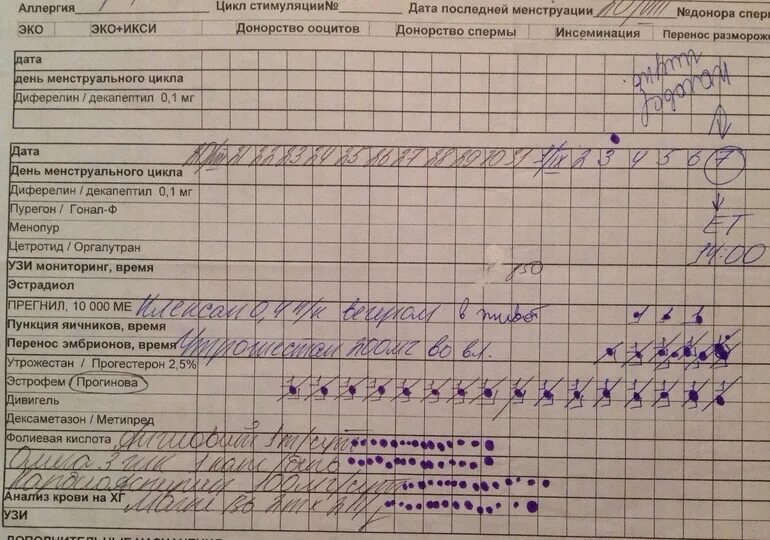 Аллергия Цикл стимуляции№ Дата последней менструации 20/VIII №донора спер
ЭКО ЭКО+ИКСИ Донорство ооцитов Донорство спермы Инсеминация Перенос разморож
дата
день менструального цикла
Диферелин / декапептил 0,1 мг
Дата 20/VIII 21 22 23 24 25 26 27 28 29 30 31 1/IX 2 3 4 5 6 7
День менструального цикла
Диферелин / декапептил 0,1 мг
Пурегон / Гонал-Ф
Менопур ET
Цетротид / Оргалутран 14:00
УЗИ мониторинг, время 850
Эстрадиол
ПРЕГНИЛ, 10 000 МЕ Клексан 0,4 п/к вечером в живот
Пункция яичников, время
Перенос эмбрионов, время Утрожестан 200мг во вл.
Утрожестан / Прогестерон 2,5%
Эстрофем / Прогинова
Дивигель
Дексаметазон / Метипред
Фолиевая кислота
Омега 3
Кардиоаспирин 100мг/сут
Анализ крови на ХГ Магне В6
УЗИ
ДОПОЛНИТЕЛЬНЫЕ НАЗНАЧЕНИЯ